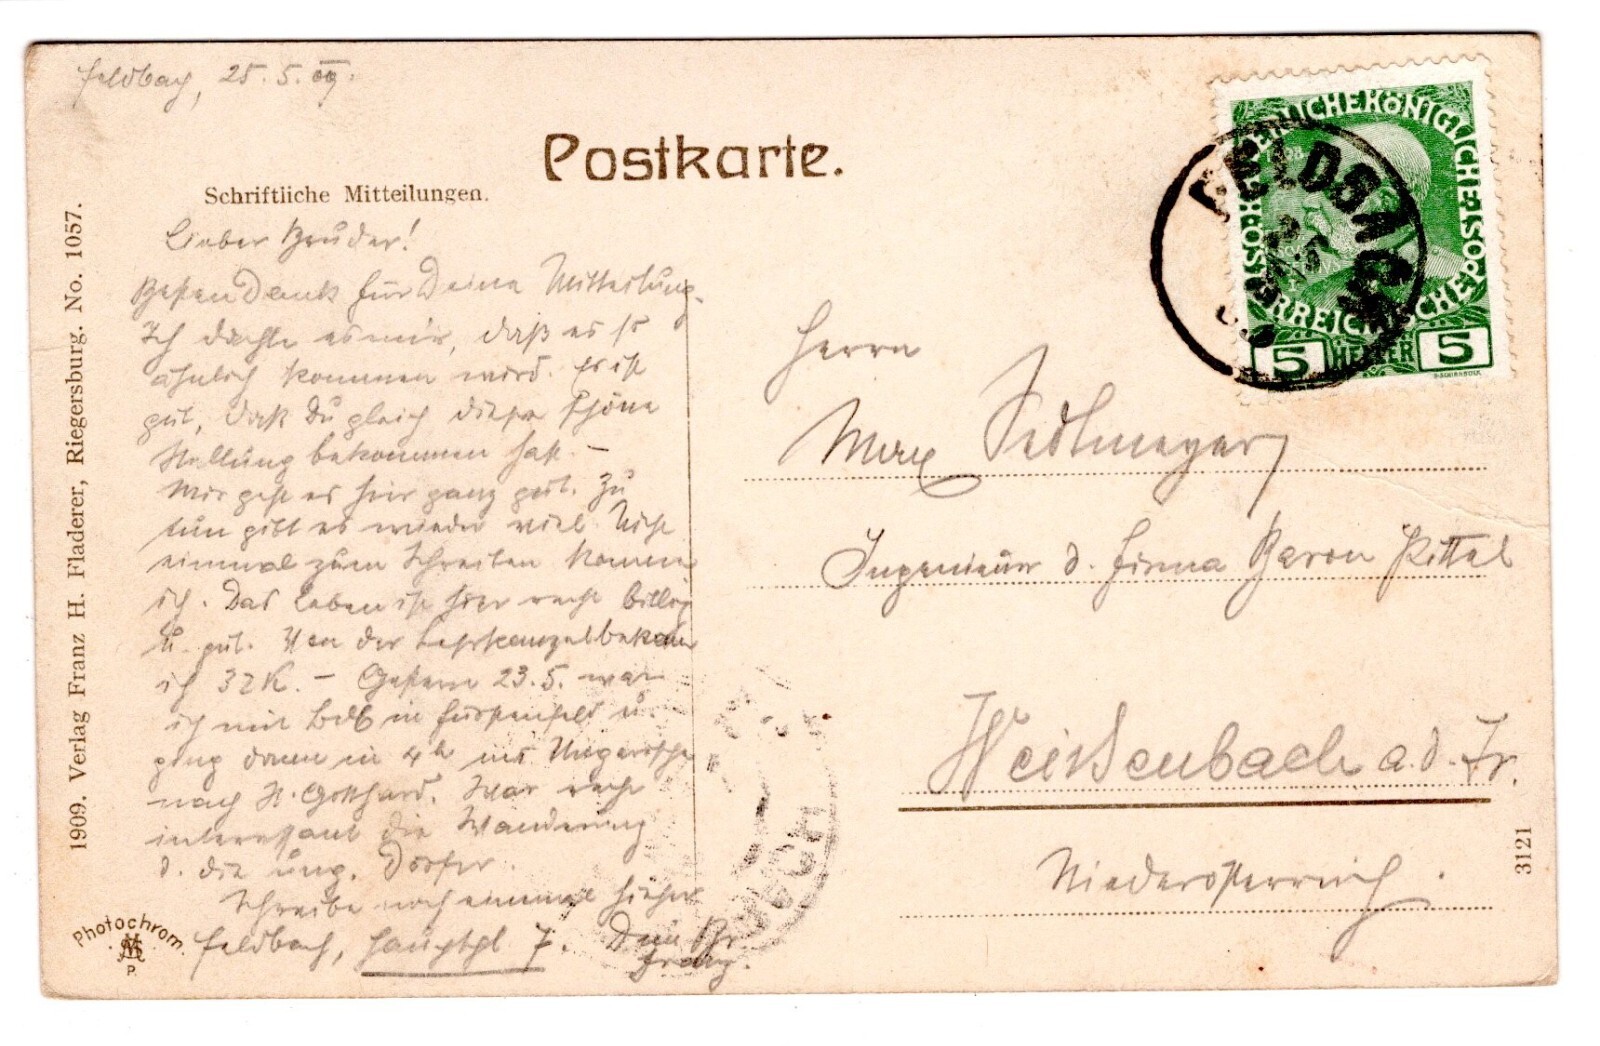 Feldbach, 25. 5. 09.
Postkarte.
Schriftliche Mitteilungen.
Lieber Bruder!
Besten Dank für Deine Mitteilung.
Ich dachte es mir, daß es so
ähnlich kommen wird. Es ist
gut, daß Du gleich diese schöne
Stellung bekommen hast. –
Mir geht es hier ganz gut. Zu
tun gibt es wieder viel. Nicht
einmal zum Schreiben komme
ich. Das Leben ist hier recht billig
u. gut. Von der Lehrkanzel bekomme
ich 32 K. – Gestern 23. 5. war
ich mit in Fürstenfeld u.
ging dann in 4h ins Ungarische
nach St. Gotthard. War recht
interessant die Wanderung
d. die ung. Dörfer.
Schreibe noch einmal hieher
Feldbach, Hauptpl. 7. Dein Br.
Franz.
Herrn
Max Sedlmeyer
Ingenieur d. Firma Baron Pittel
Weißenbach a. d. Tr.
Niederösterreich.
KAISERLICHE KÖNIGLICHE ÖSTERREICHISCHE POST
1908
5 HELLER 5
FELDBACH
1909. Verlag Franz H. Fladerer, Riegersburg. No. 1057.
Photochrom.
P.
3121